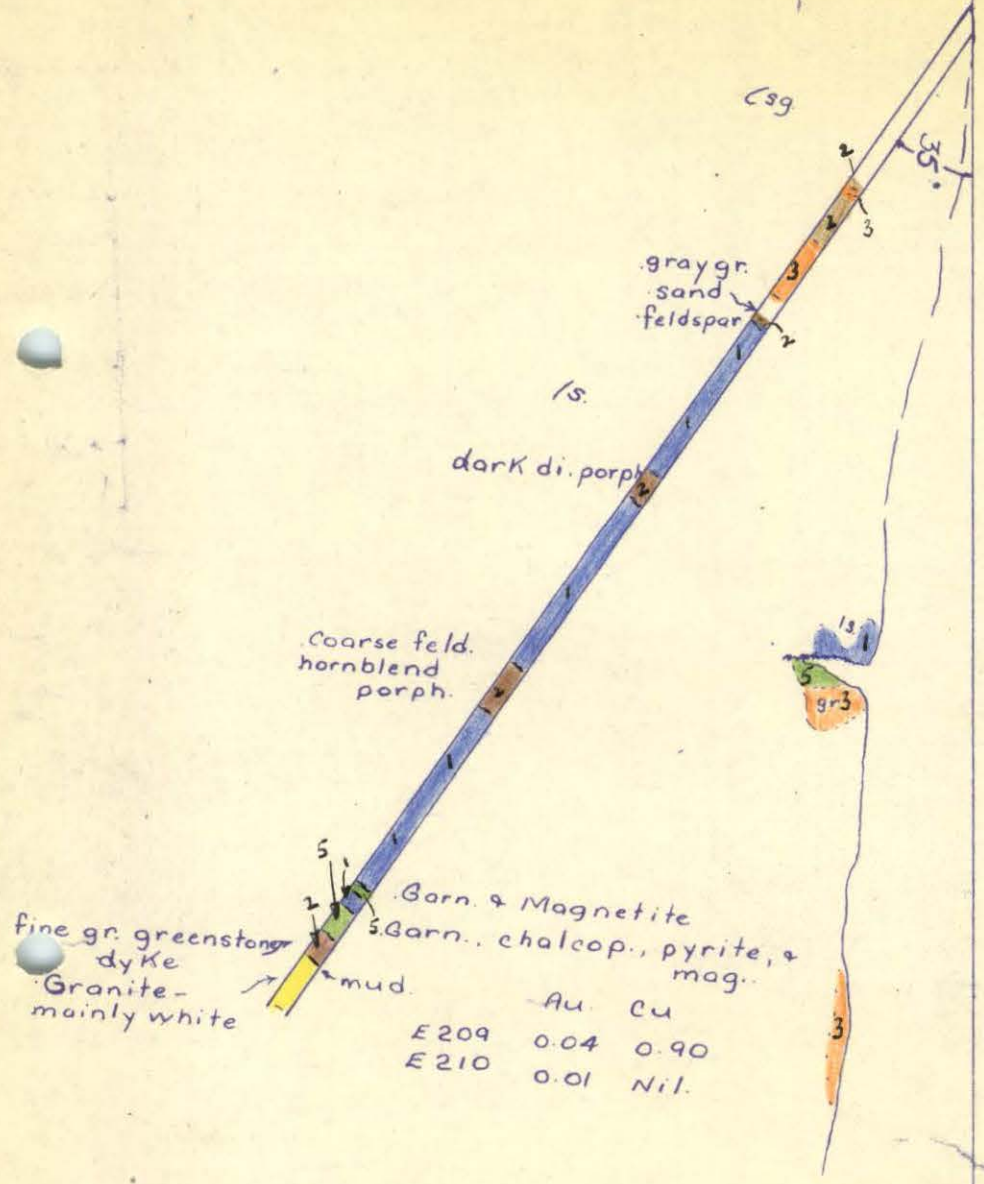 Csg.
35°
2
3
2
3
gray gr.
sand
feldspar
2
1
ls.
1
dark di. porph
2
1
ls.
1
5
gr 3
Coarse feld.
hornblend
porph.
2
1
1
5
1
2
5
Garn. & Magnetite
Garn., chalcop., pyrite, &
mag..
fine gr. greenstone
dyke
Granite-
mainly white
mud.
Au. Cu
E 209 0.04 0.90
E 210 0.01 Nil.
3